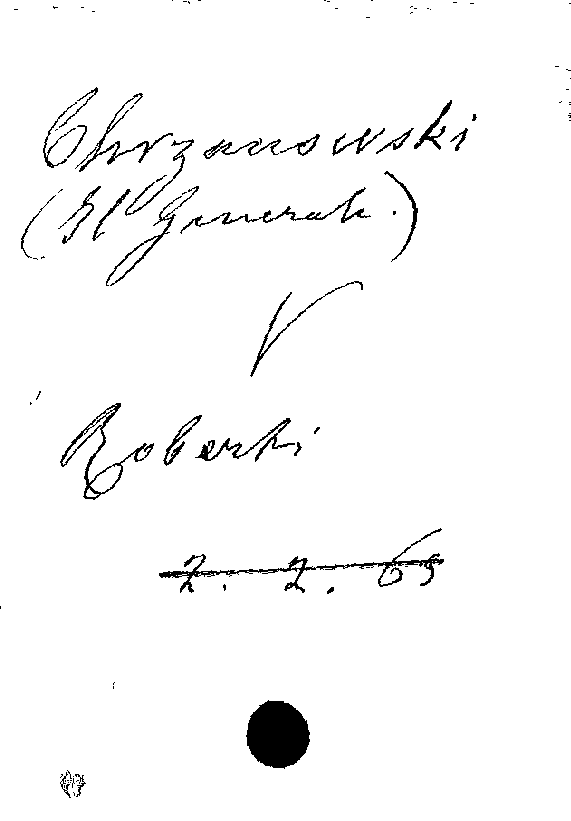 Chrzanowski
(El General.)
V
Roberti
2. 2. 65